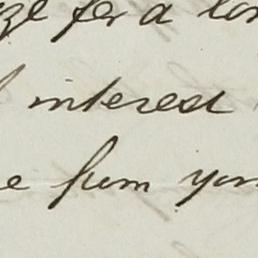 for a
interest
e from your